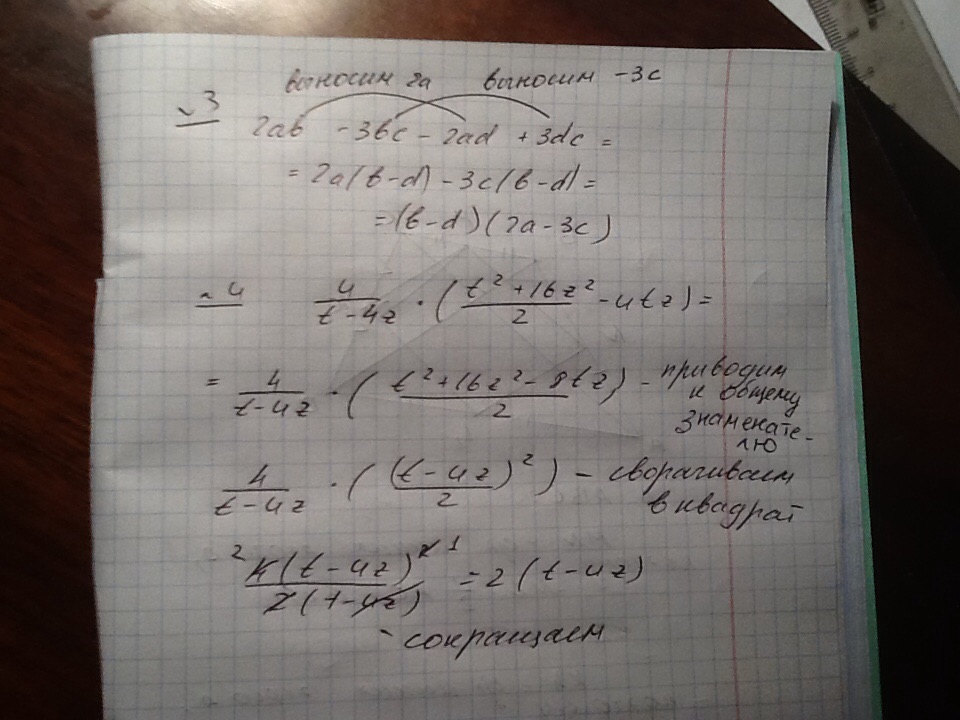 выносим 2а выносим -3с
№3
2ab - 3bc - 2ad + 3dc =
= 2a(b-d) - 3c(b-d) =
= (b-d)(2a-3c)
№4 4/(t-4z) · ((t²+16z²)/2 - 4tz) =
= 4/(t-4z) · ((t²+16z²-8tz)/2) - приводим
к общему
знаменате-
лю
4/(t-4z) · ((t-4z)²/2) - сворачиваем
в квадрат
2 4(t-4z)² 1 / 2(t-4z) = 2(t-4z)
- сокращаем